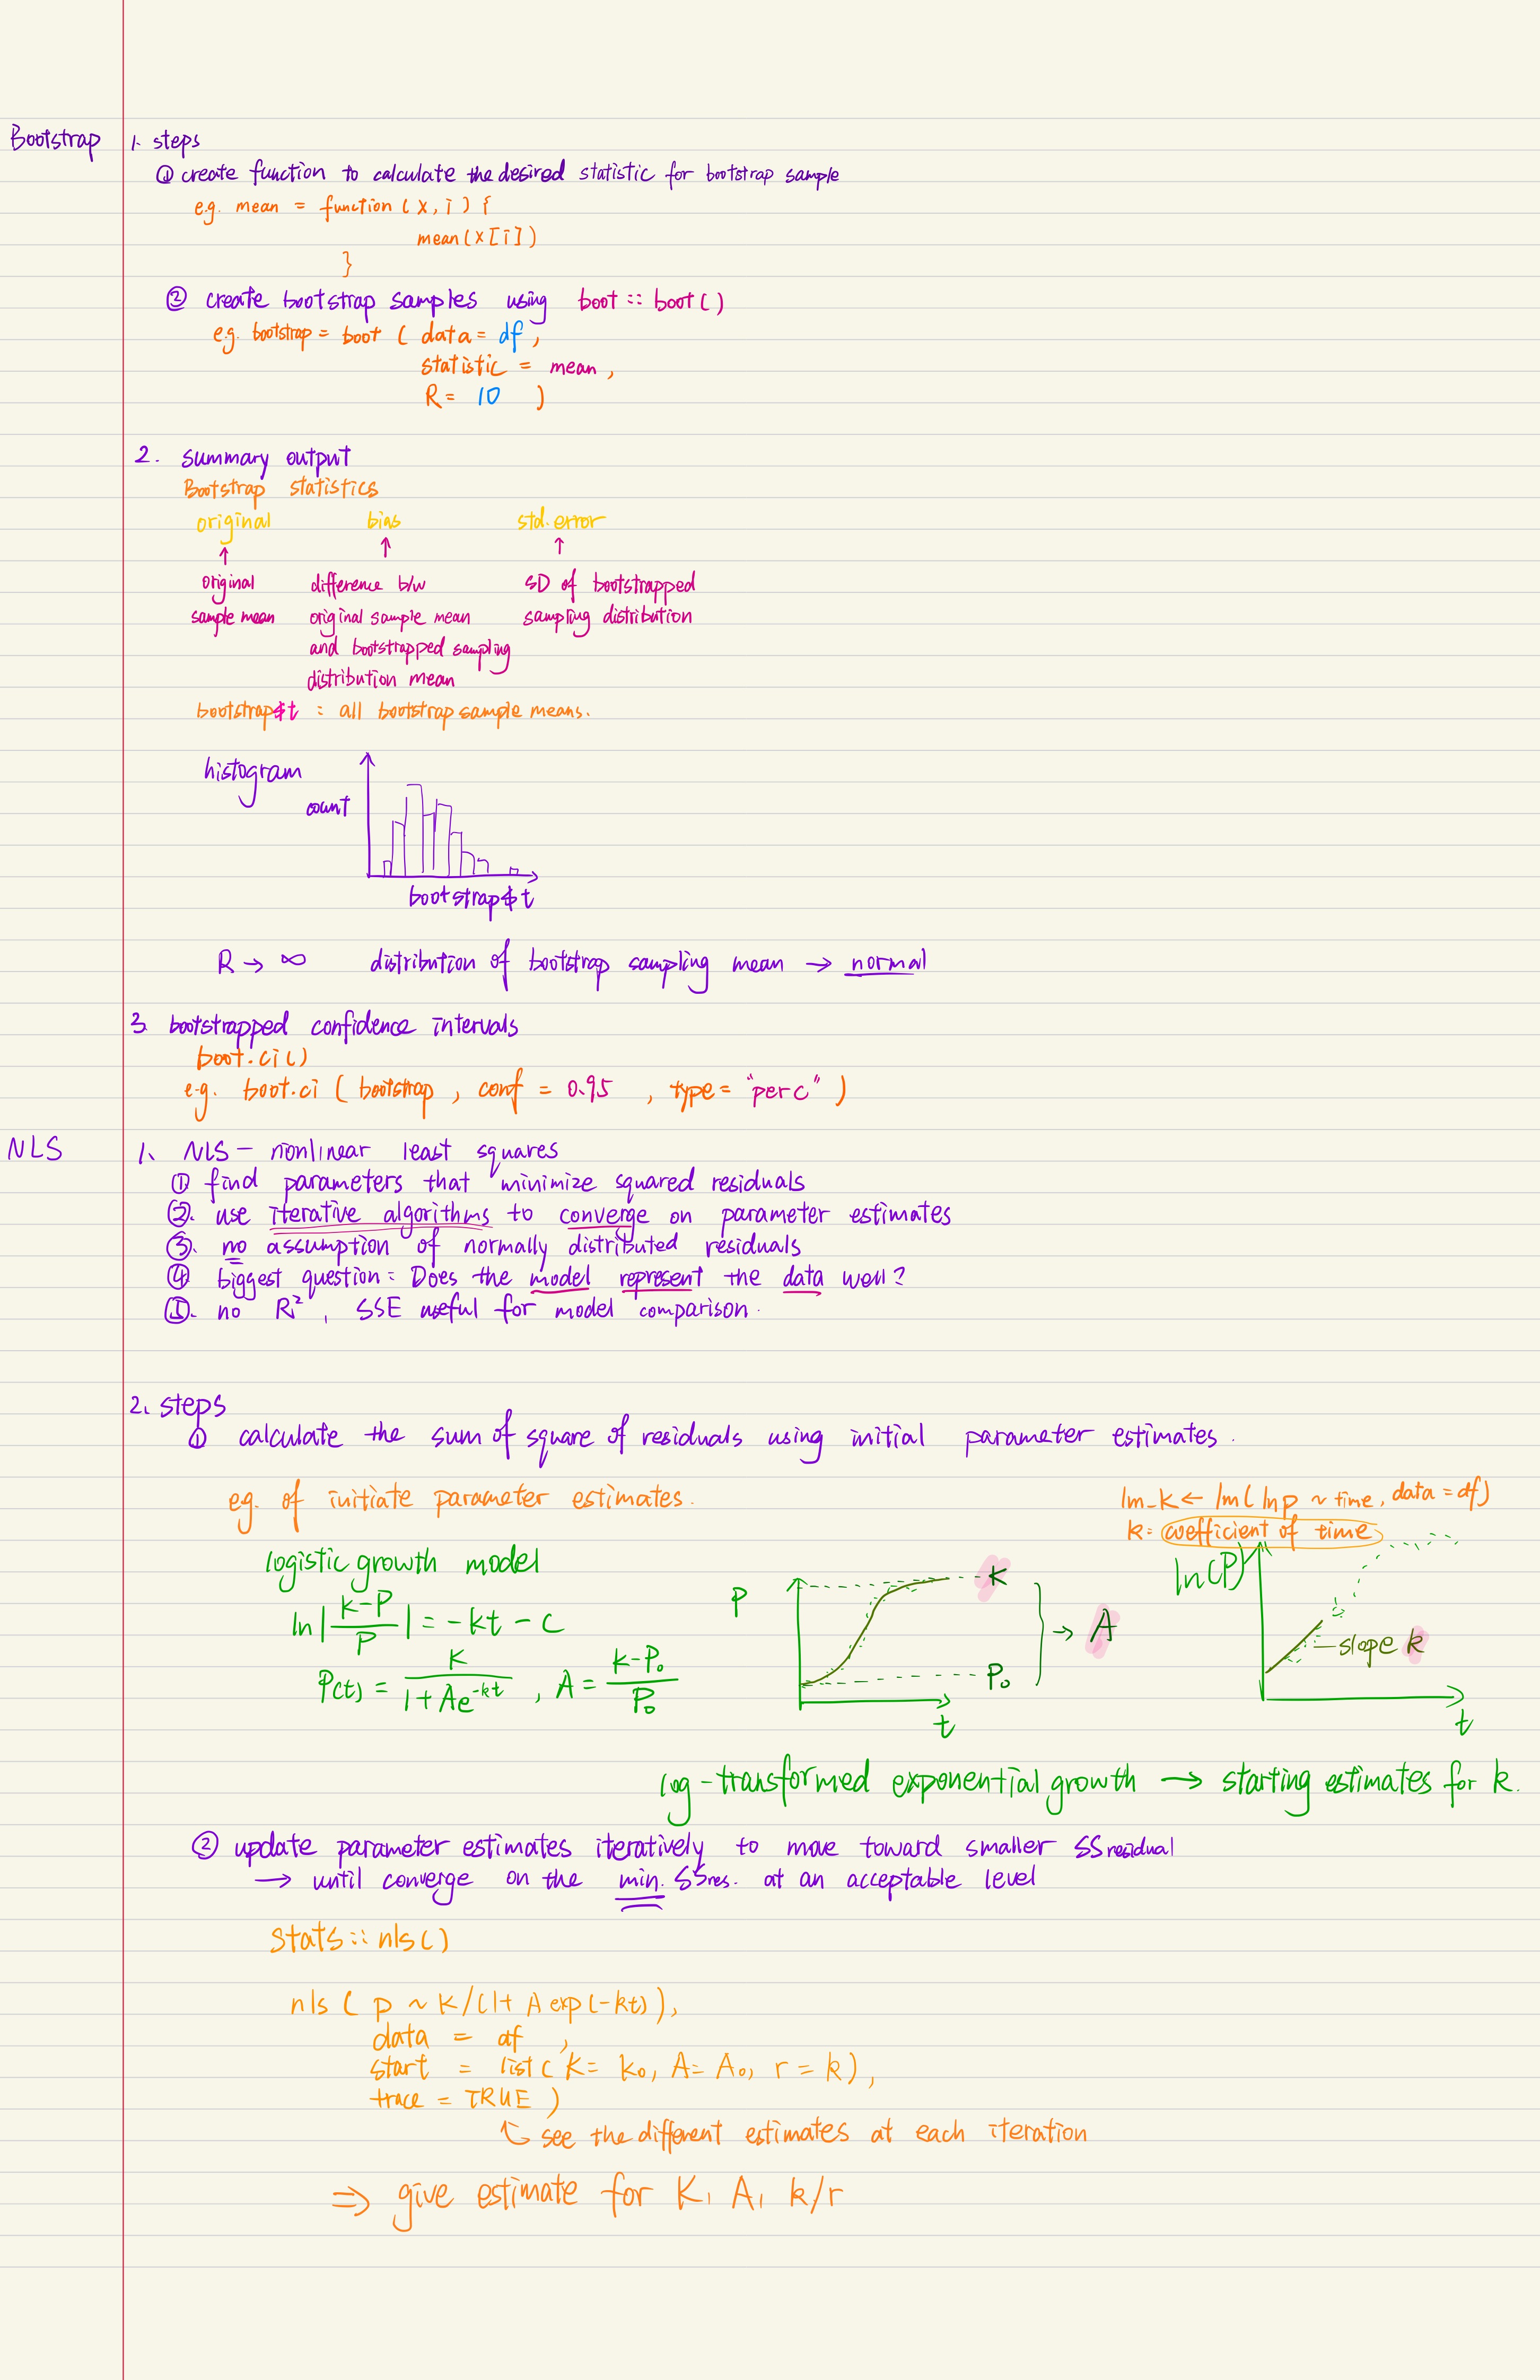 Bootstrap
1. steps
① create function to calculate the desired statistic for bootstrap sample
e.g. mean = function (x, i) {
mean(x[i])
}
② create bootstrap samples using boot :: boot ()
e.g. bootstrap = boot ( data = df,
statistic = mean,
R = 10 )
2. summary output
Bootstrap statistics
original bias std. error
↑ ↑ ↑
original difference b/w SD of bootstrapped
sample mean original sample mean sampling distribution
and bootstrapped sampling
distribution mean
bootstrap$t : all bootstrap sample means.
histogram
count
bootstrap$t
R → ∞ distribution of bootstrap sampling mean → normal
3. bootstrapped confidence intervals
boot.ci()
e.g. boot.ci ( bootstrap, conf = 0.95, type = "perc" )
NLS
1. NLS - nonlinear least squares
① find parameters that minimize squared residuals
②. use iterative algorithms to converge on parameter estimates
③. no assumption of normally distributed residuals
④ biggest question: Does the model represent the data well?
⑤. no R², SSE useful for model comparison.
2. steps
① calculate the sum of square of residuals using initial parameter estimates.
eg. of initiate parameter estimates.
lm_k ← lm( lnp ~ time, data = df)
k = coefficient of time
logistic growth model
ln|(K-P)/P| = -kt - c
P(t) = K/(1+Ae^-kt), A = (K-P₀)/P₀
P K
→ A
P₀
t
ln(P)
slope k
t
log-transformed exponential growth → starting estimates for k.
② update parameter estimates iteratively to move toward smaller SSresidual
→ until converge on the min. SSres. at an acceptable level
stats :: nls()
nls ( p ~ K/(1+ A exp(-kt)),
data = df,
start = list( K = K₀, A = A₀, r = k),
trace = TRUE )
see the different estimates at each iteration
⇒ give estimate for K, A, k/r